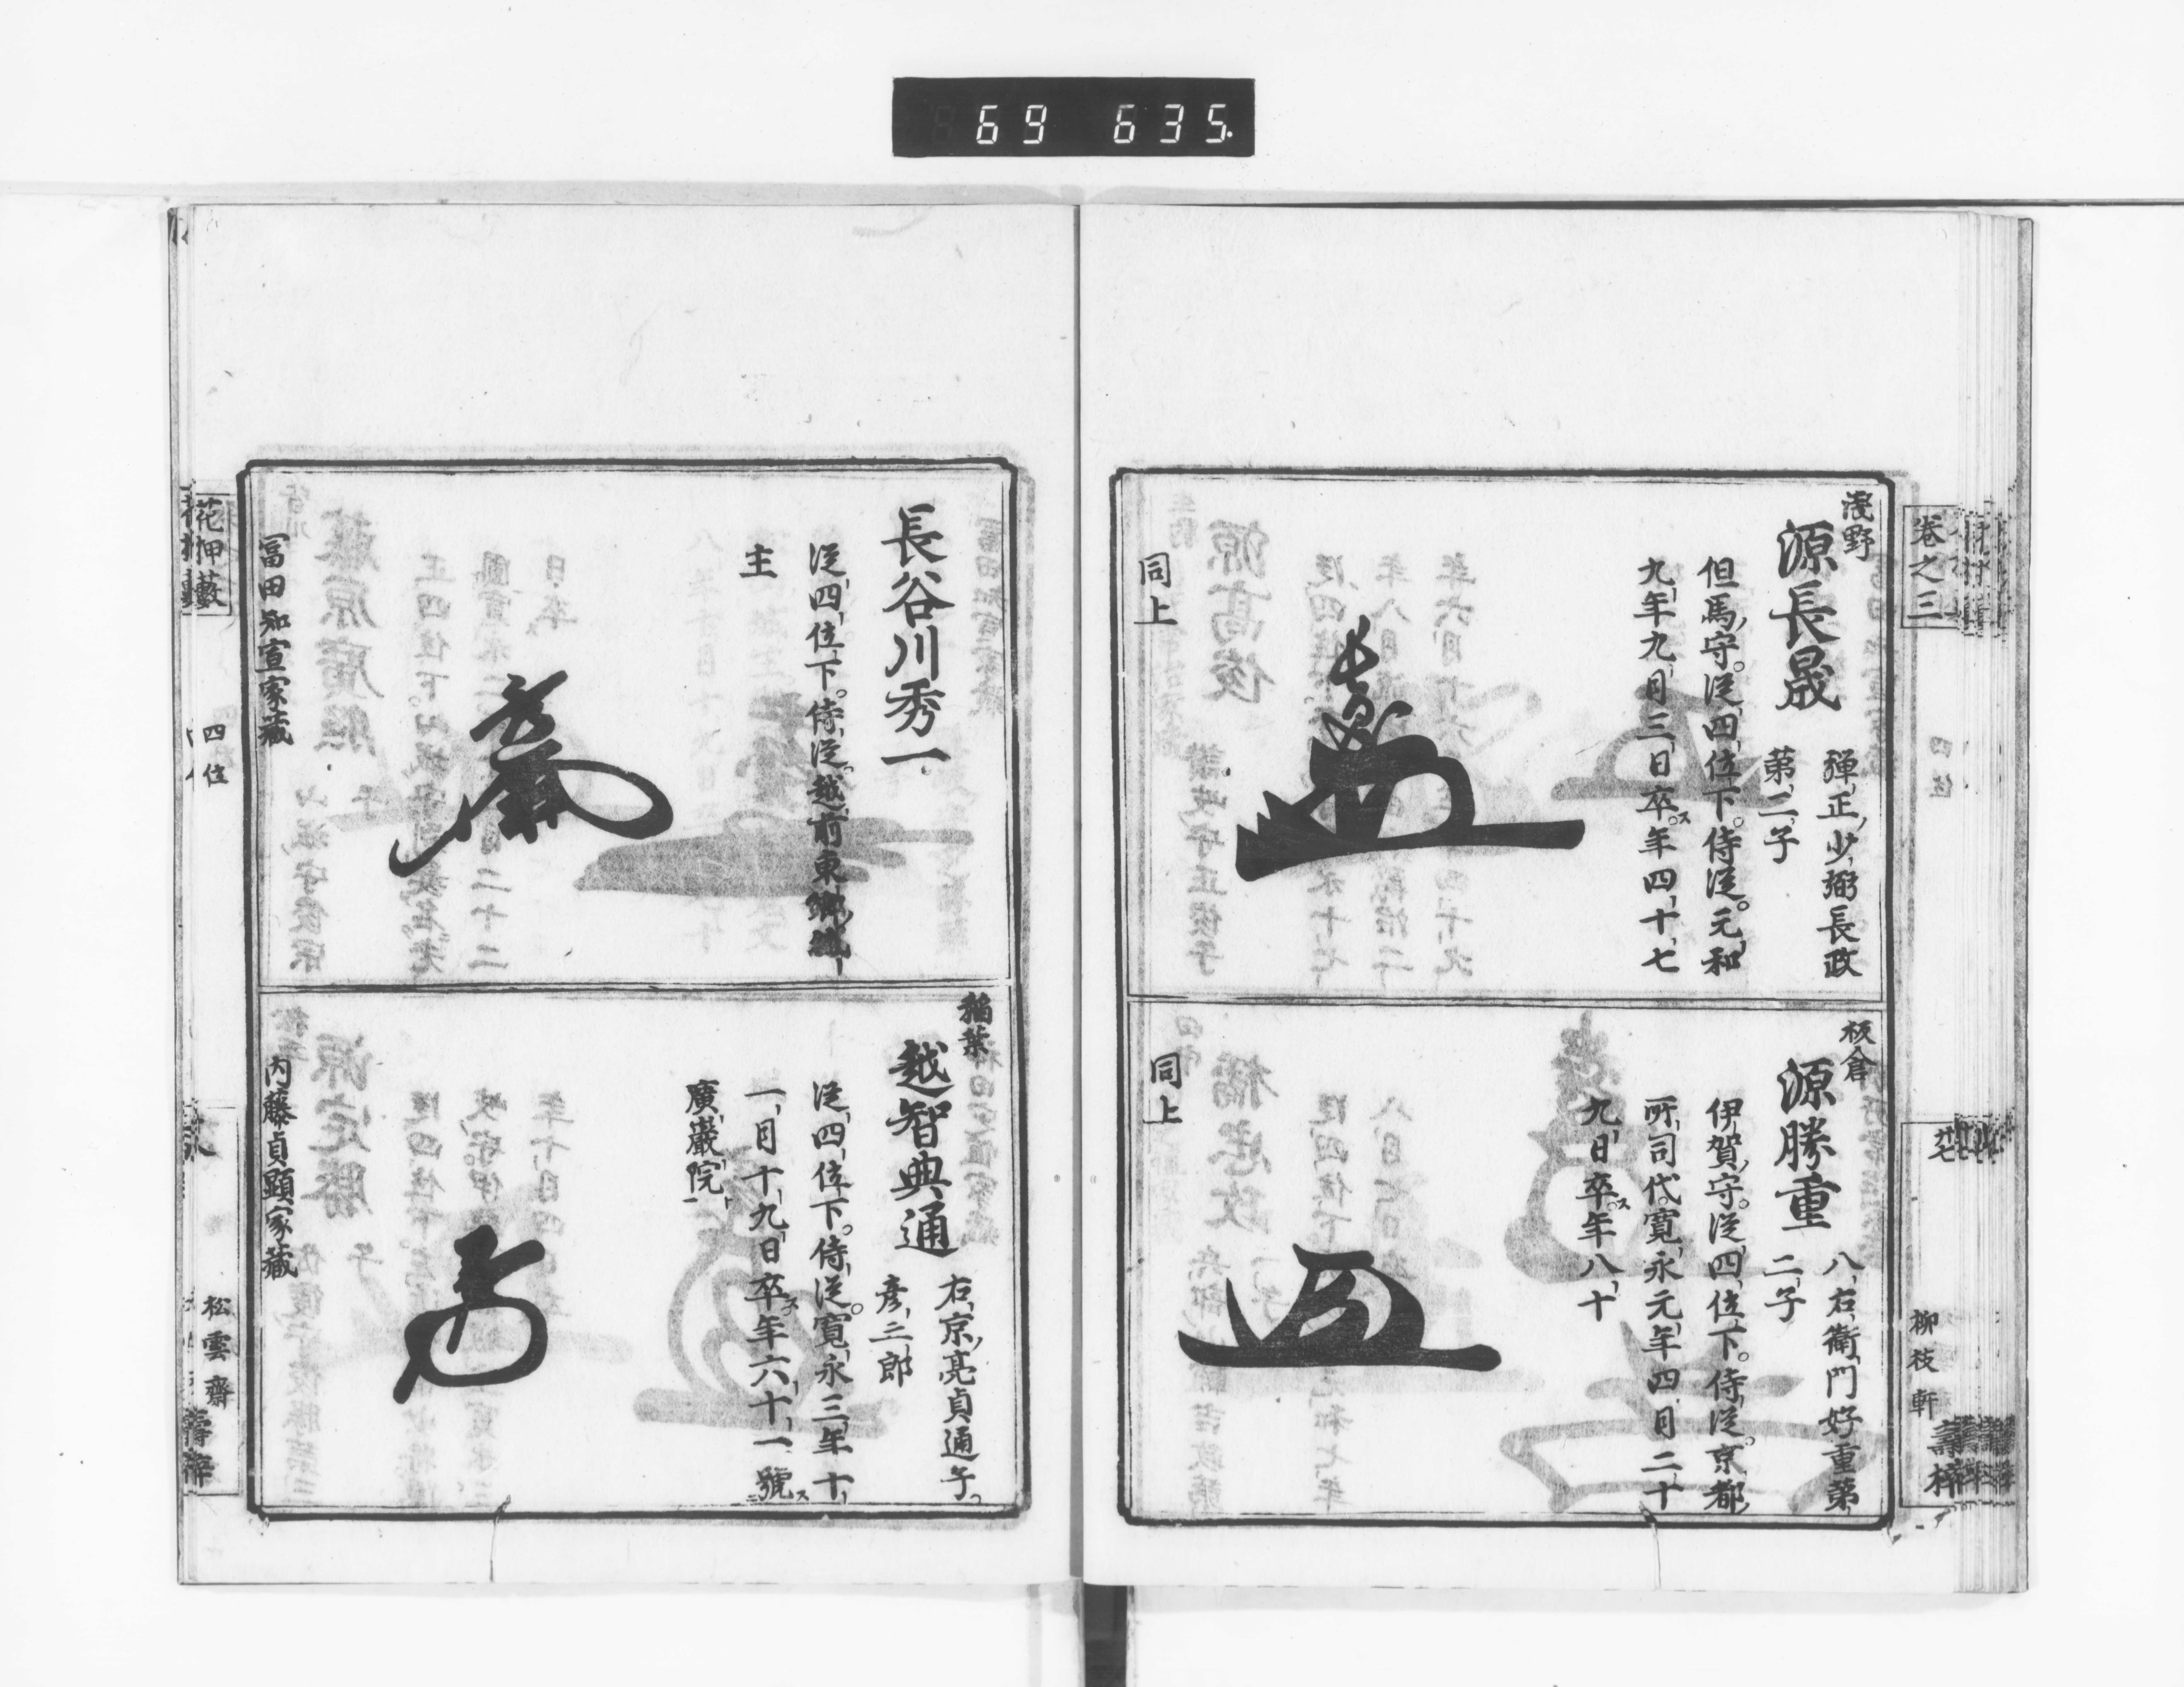 69 635
巻之三
四位
廿七
柳枝軒
壽梓
淺野
源長晟
彈正少弼長政
第二子
但馬守。從四位下。侍從。元和
九年九月三日卒ス。年四十七
同上
板倉
源勝重
八右衛門好重第
二子
伊賀守。從四位下。侍從。京都
所司代。寛永元年四月二十
九日卒ス。年八十
同上
長谷川秀一
從四位下。侍從。越前東郷城
主
冨田知宣家藏
稲葉
越智典通
右京亮貞通子。
彦三郎
從四位下。侍從。寛永三年十
一月十九日卒ス。年六十一號ス
廣巖院ト
内藤貞顕家藏
花押藪
四位
松雲齋
壽梓